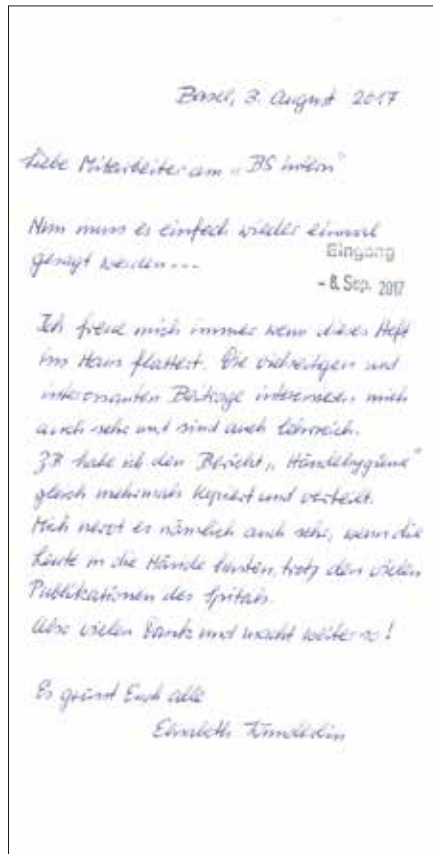 Basel, 3. August 2017
Liebe Mitarbeiter am „BS intern"
Nun muss es einfach wieder einmal
gesagt werden...
Eingang
- 8. Sep. 2017
Ich freue mich immer wenn dieses Heft
ins Haus flattert. Die vielseitigen und
interessanten Beiträge interessieren mich
auch sehr und sind auch lehrreich.
ZB habe ich den Bericht „Händehygiene"
gleich mehrmals kopiert und verteilt.
Mich nervt es nämlich auch sehr, wenn die
Leute in die Hände husten, trotz den vielen
Publikationen des Spitals.
Also vielen Dank und macht weiter so!
Es grüsst Euch alle
Elisabeth